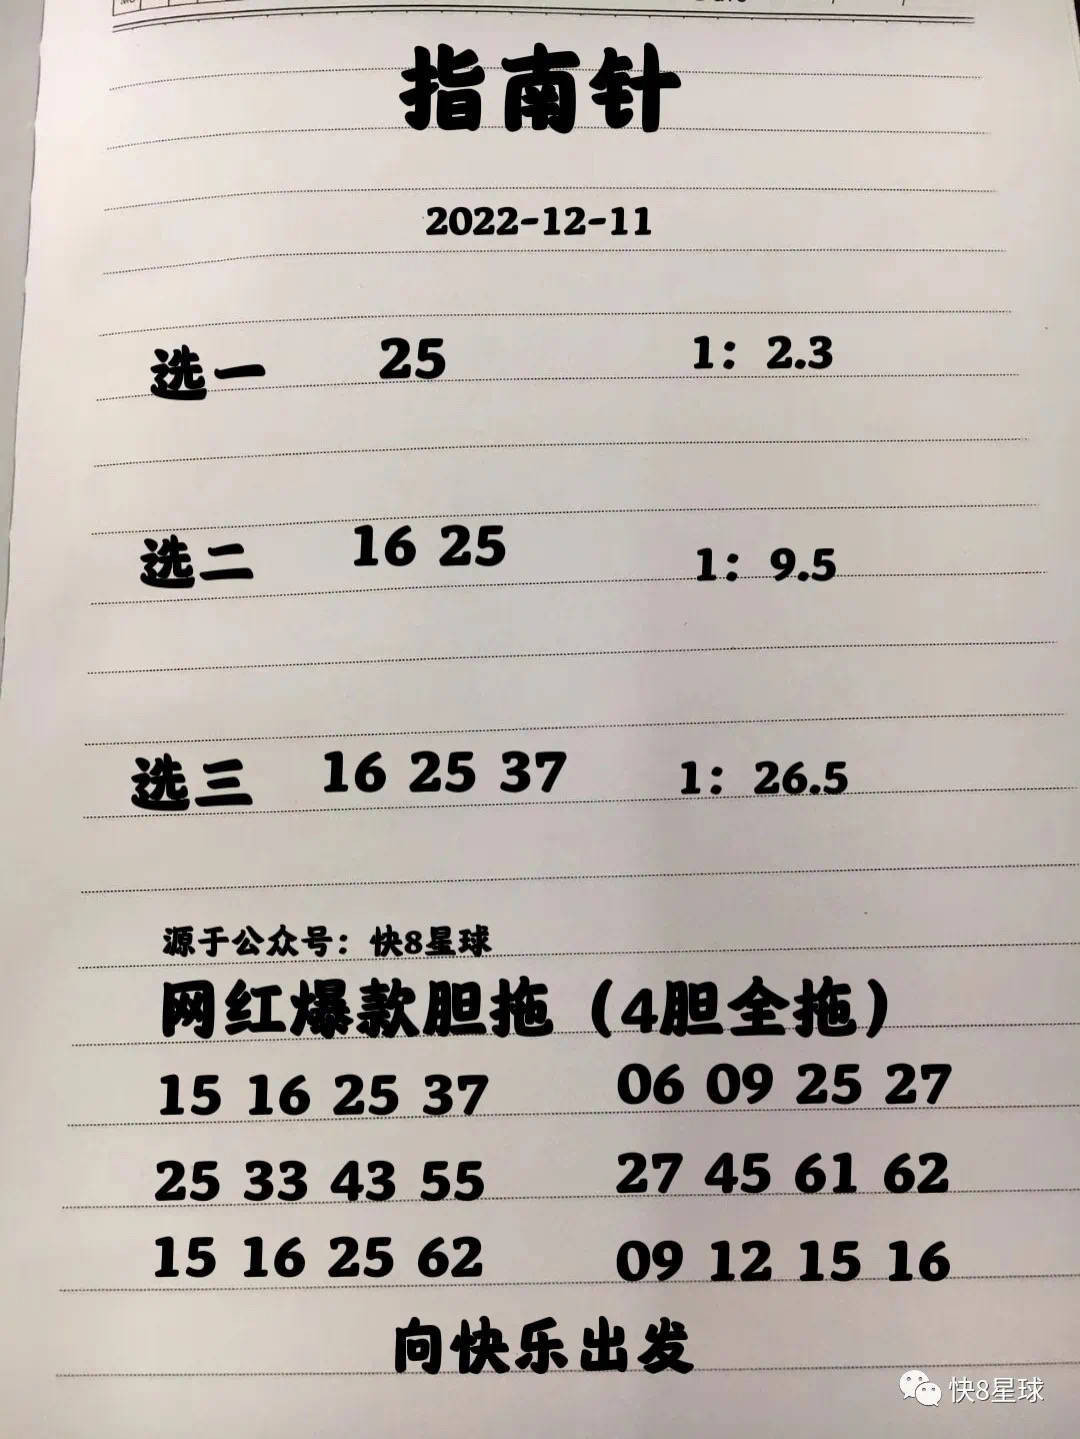 指南针
2022-12-11
选一 25 1：2.3
选二 16 25 1：9.5
选三 16 25 37 1：26.5
源于公众号：快8星球
网红爆款胆拖（4胆全拖）
15 16 25 37 06 09 25 27
25 33 43 55 27 45 61 62
15 16 25 62 09 12 15 16
向快乐出发
快8星球